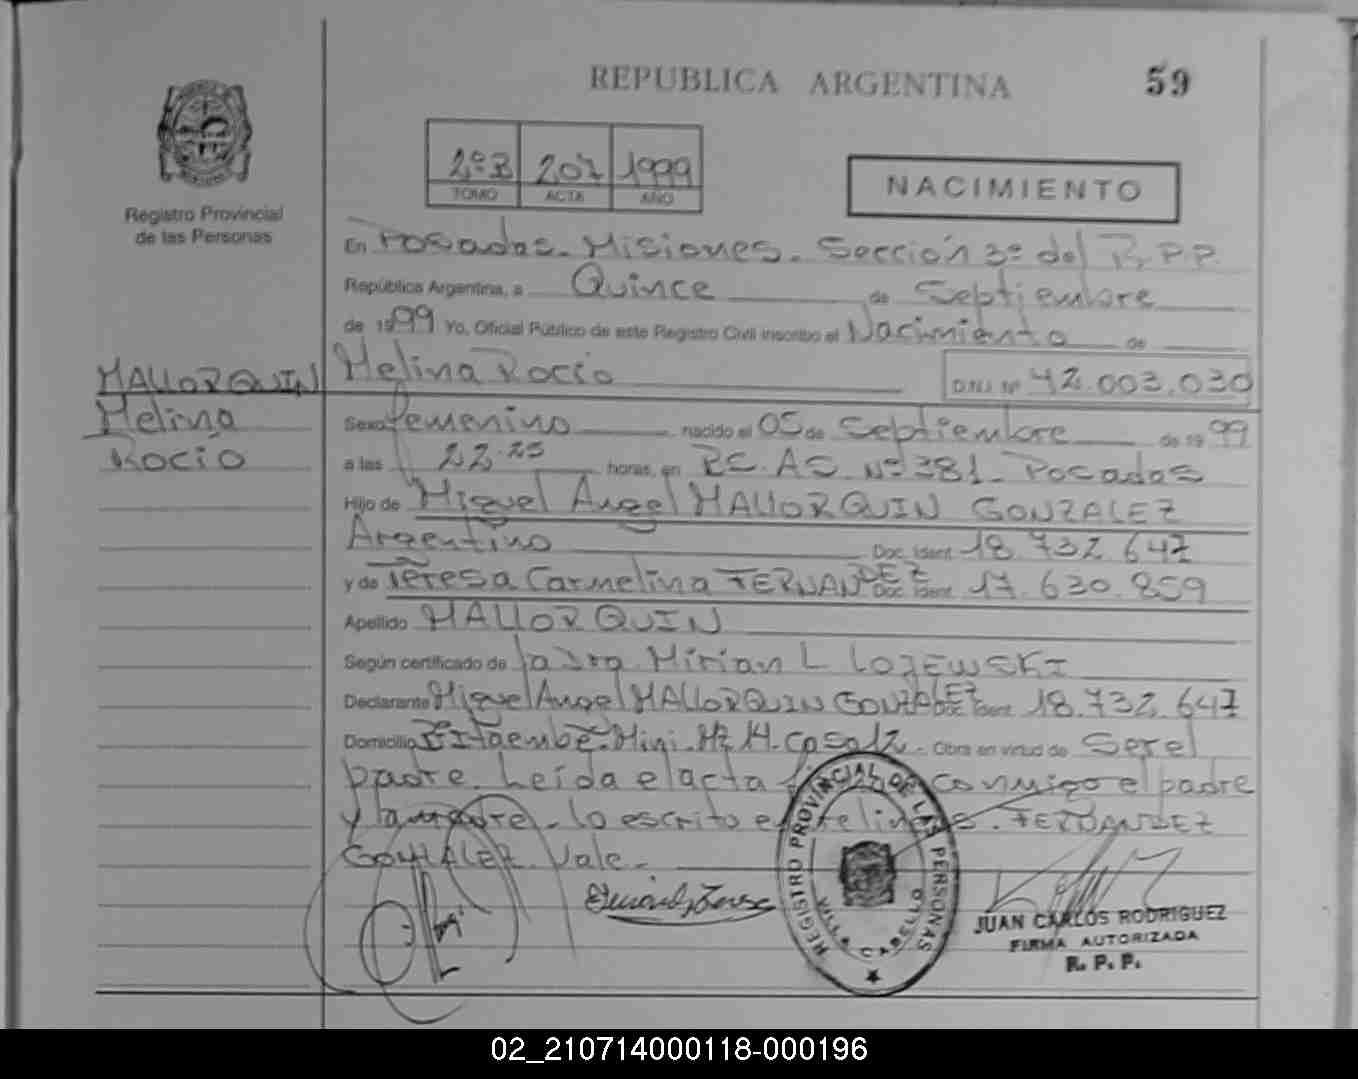 REPUBLICA ARGENTINA
59
Registro Provincial
de las Personas
2º B 207 1999
TOMO ACTA AÑO
NACIMIENTO
En Posadas. Misiones. Sección 3º del R.P.P.
República Argentina, a Quince de Septiembre
de 1999 Yo, Oficial Público de este Registro Civil inscribo el Nacimiento de
Melina Rocío D.N.I. Nº 42.003.030
MALLORQUIN
Melina
Rocío
Sexo femenino nacido el 05 de Septiembre de 1999
a las 22.25 horas, en RC. AS. Nº 381. Posadas
Hijo de Miguel Angel MALLORQUIN GONZALEZ
Argentino Doc. Ident. 18.732.647
y de Teresa Carmelina FERNANDEZ Doc. Ident. 17.630.859
Apellido MALLORQUIN
Según certificado de la Dra. Mirian L LOJEWSKI
Declarante Miguel Angel MALLORQUIN GONZALEZ Doc. Ident. 18.732.647
Domicilio Bº Itaembé. Mini. Mz 14. Casa 12. Obra en virtud de Ser el
padre. Leída el acta conmigo el padre
y la madre. lo escrito entrelineas. FERNANDEZ
GONZALEZ. Vale.
REGISTRO PROVINCIAL DE LAS PERSONAS
VILLA CABELLO
JUAN CARLOS RODRIGUEZ
FIRMA AUTORIZADA
R. P. P.
02_210714000118-000196